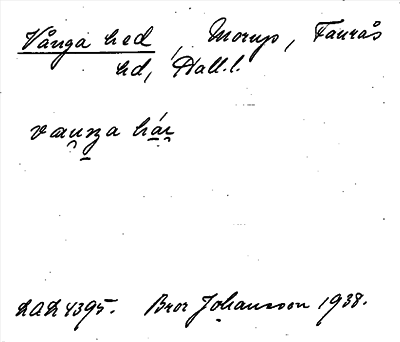 Vånga hed, Morup, Faurås
hd, Hall. l.
vaŋga hár
LAL 4395. Bror Johansson 1938.